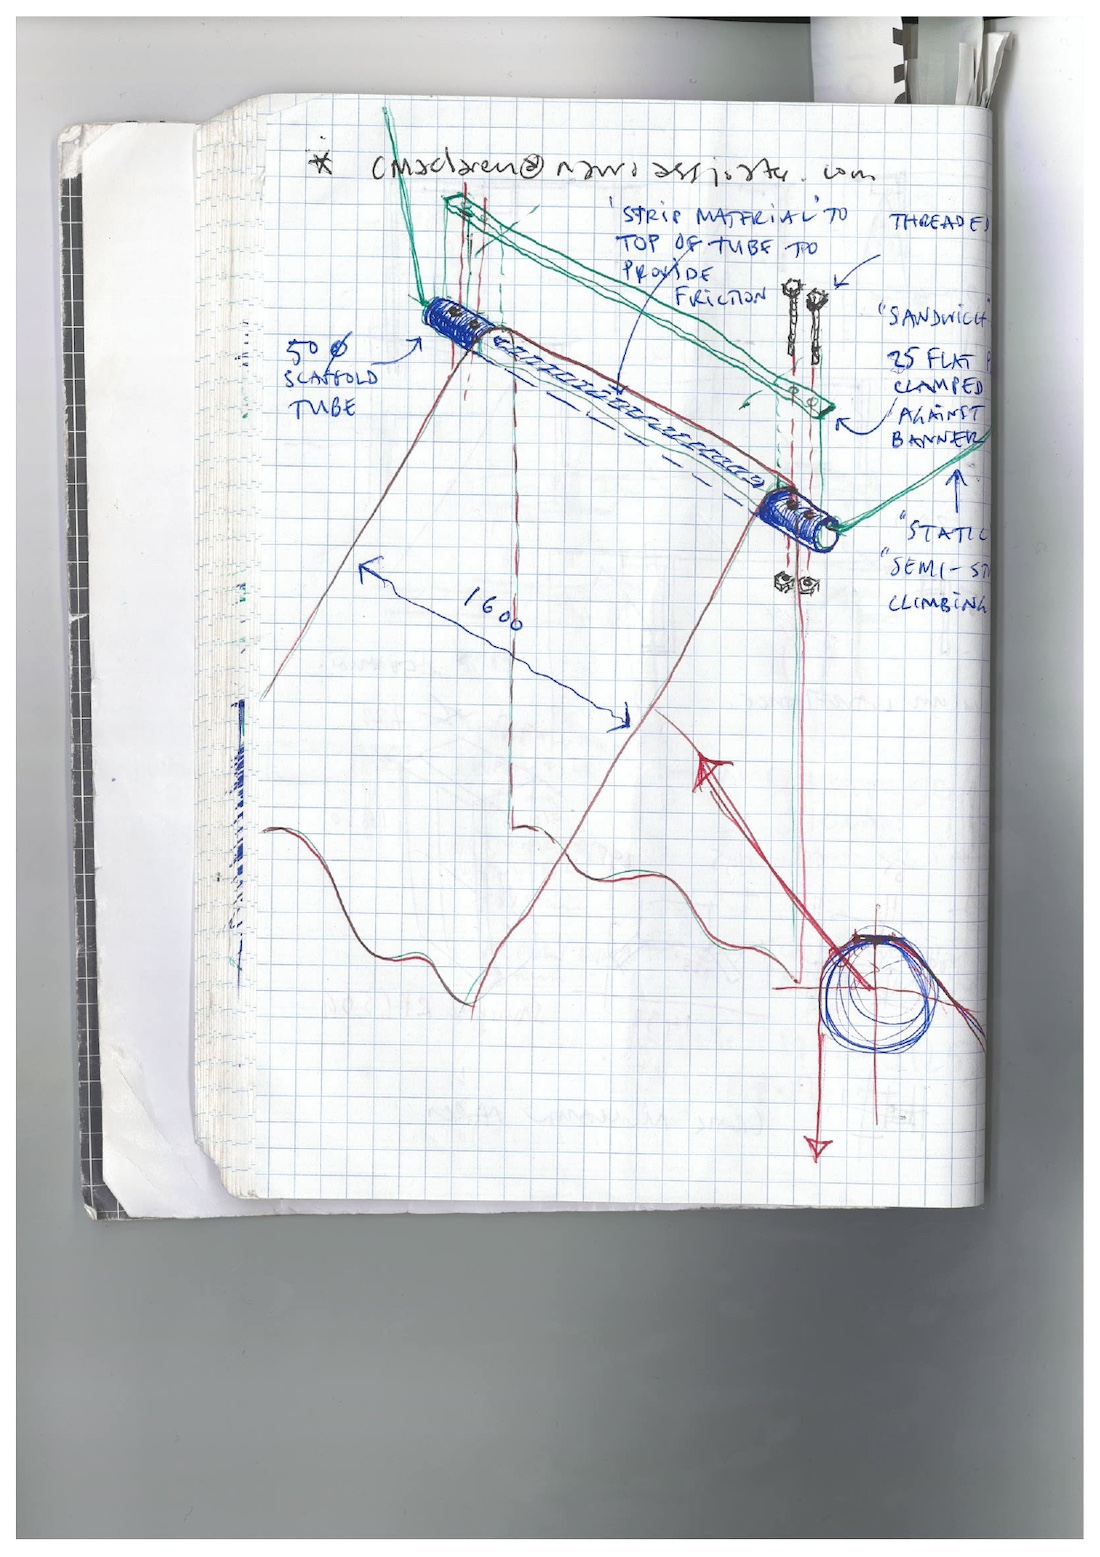 * 
'STRIP MATERIAL' TO
TOP OF TUBE TO
PROVIDE
FRICTION
THREADED
"SANDWICH"
25 FLAT
CLAMPED
AGAINST
BANNER
50 Ø
SCAFFOLD
TUBE
"STATIC
"SEMI-ST
CLIMBING
1600